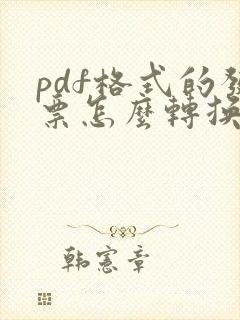 pdf格式的發
票怎麼轉換
韩憲章